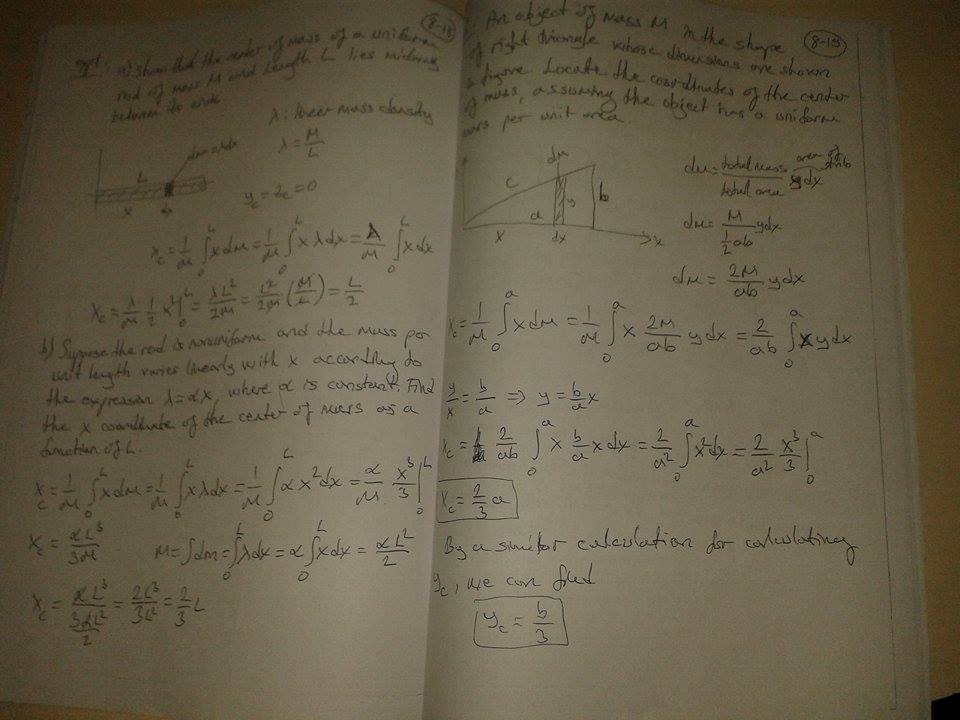 8-18
a) Show that the center of mass of a uniform
rod of mass M and length L lies midway
between its ends
λ: linear mass density
λ = M/L
dm = λdx
L
x
dx
y_c = z_c = 0
x_c = 1/M ∫₀ᴸ x dm = 1/M ∫₀ᴸ x λ dx = λ/M ∫₀ᴸ x dx
x_c = λ/M 1/2 x² |₀ᴸ = λL²/2M = L²/2M (M/L) = L/2
b) Suppose the rod is nonuniform and the mass per
unit length varies linearly with x according to
the expression λ = αx, where α is constant. Find
the x coordinate of the center of mass as a
function of L.
x_c = 1/M ∫₀ᴸ x dm = 1/M ∫₀ᴸ x λ dx = 1/M ∫₀ᴸ α x² dx = α/M x³/3 |₀ᴸ
x_c = αL³/3M M = ∫dm = ∫₀ᴸ λdx = α ∫₀ᴸ x dx = αL²/2
x_c = αL³/(3αL²/2) = 2L³/3L² = 2/3 L
8-19
An object of mass M in the shape
of right triangle whose dimensions are shown
figure. Locate the coordinates of the center
of mass, assuming the object has a uniform
mass per unit area.
dm
c
y
b
a
x
dx
x
dm = total mass/total area ydx
area of
dm = M/(1/2 ab) ydx
dm = 2M/ab ydx
x_c = 1/M ∫₀ᵃ x dm = 1/M ∫₀ᵃ x 2M/ab y dx = 2/ab ∫₀ᵃ x y dx
y/x = b/a ⟹ y = b/a x
x_c = 2/ab ∫₀ᵃ x b/a x dx = 2/a² ∫₀ᵃ x² dx = 2/a² x³/3 |₀ᵃ
x_c = 2/3 a
By a similar calculation for calculating
y_c, we can find
y_c = b/3